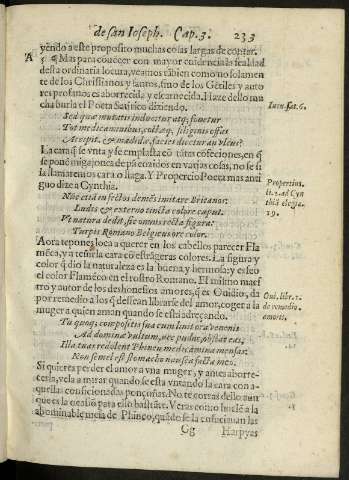 de san Ioseph. Cap. 3. 233
yendo a este proposito muchas cosas largas de contar.
A 3 ¶ Mas para conocer con mayor euidencia la fealdad
desta ordinaria locura, veamos tãbien como no solamen
te de los Christianos y santos, sino de los Gẽtiles y auto
res profanos es aborrecida y escarnecida. Haze dello mu
cha burla el Poeta Satyrico diziendo. Iuuen. sat. 6.
Sed quæ mutatis inducitur atq; fouetur
Tot medicaminibus, coctæq; siliginis offas
Accipit, & madidæ, facies dicetur an vlcus?
La cara q̃ se vnta y se emplasta cõ tãtas cofeciones, en q̃
se ponẽ migajones de pã cozidos en varias cosas, no se si
la llamaremos cara o llaga. Y Propercio Poeta mas anti
guo dize a Cynthia.
Propertius.
li. 2. ad Cyn
thiã elegia.
19.
Nũc etiã infectos demẽs imitare Britanos.
Ludis & externo tincta colore caput.
Vt natura dedit, sic omnis recta figura:
Turpis Romano Belgicus ore color.
Aora te pones loca a querer en los cabellos parecer Fla
mẽca, y a teñirla cara cõ estrãgeras colores. La figura y
color q̃ dio la naturaleza es la buena y hermosa: y es feo
el color Flamẽco en el rostro Romano. El mismo maes
tro y autor de los deshonestos amores, q̃ es Ouidio, da
por remedio a los q̃ dessean librarse del amor, coger a la
muger a quien aman quando se està adreçando.
Oui. libr. 2.
de remedio
amoris.
Tu quoq; compositis sua cum linit ora venenis
Ad dominæ vultum, nec pudor obstat eas,
Illa tuas redolent Phineu medicamina mensas:
Non semel est stomacho nausea facta meo.
Si quieres perder el amor a vna muger, y antes aborre-
cerla, vela a mirar quando se esta vntando la cara con a-
quellas confacionadas ponçoñas. No te corras dello aun
que es la ocasiõ para ello bastãte. Veras como huele a la
abominable mesa de Phineo, quãdo se la ensuciauan las
Gg Harpyas